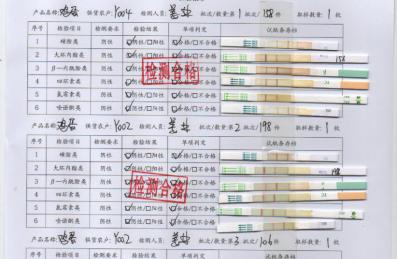 产品名称: 鸡蛋 供货农户: Y004 检测人员: 批次/数量: 第1批次/158件 取样数量: 1枚
序号 检验项目 检测要求 检验结果 单项判定 试纸条存档
1 磺胺类 阴性 ☑阴性/□阳性 ☑合格/□不合格
2 大环内酯类 阴性 ☑阴性/□阳性 ☑合格/□不合格
3 β-内酰胺类 阴性 ☑阴性/□阳性 ☑合格/□不合格
4 四环素类 阴性 ☑阴性/□阳性 ☑合格/□不合格
5 氯霉素类 阴性 ☑阴性/□阳性 ☑合格/□不合格
6 喹诺酮类 阴性 ☑阴性/□阳性 ☑合格/□不合格
检测合格
产品名称: 鸡蛋 供货农户: Y002 检测人员: 批次/数量: 第2批次/198件 取样数量: 1枚
序号 检验项目 检测要求 检验结果 单项判定 试纸条存档
1 磺胺类 阴性 ☑阴性/□阳性 ☑合格/□不合格
2 大环内酯类 阴性 ☑阴性/□阳性 ☑合格/□不合格
3 β-内酰胺类 阴性 ☑阴性/□阳性 ☑合格/□不合格
4 四环素类 阴性 ☑阴性/□阳性 ☑合格/□不合格
5 氯霉素类 阴性 ☑阴性/□阳性 ☑合格/□不合格
6 喹诺酮类 阴性 ☑阴性/□阳性 ☑合格/□不合格
检测合格
产品名称: 鸡蛋 供货农户: Y002 检测人员: 批次/数量: 第3批次/106件 取样数量: 1枚